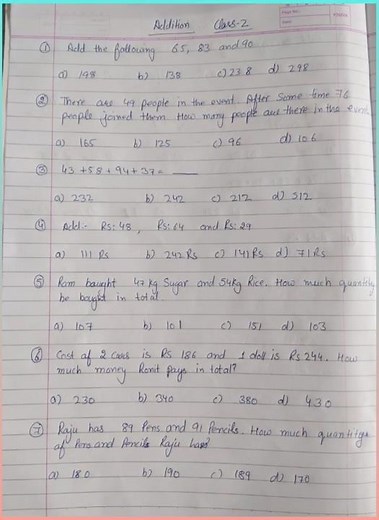 Addition Class-2
① Add the following 65, 83 and 90
a) 198 b) 138 c) 238 d) 298
② There are 49 people in the event After Some time 76
people joined them How many people are there in the event
a) 165 b) 125 c) 96 d) 106
③ 43 + 58 + 94 + 37 = ____
a) 232 b) 242 c) 212 d) 312
④ Add:- Rs: 48, Rs: 64 and Rs: 29
a) 111 Rs b) 242 Rs c) 141 Rs d) 71 Rs
⑤ Ram baught 47 kg Sugar and 54kg Rice. How much quantity
he baught in total.
a) 107 b) 101 c) 151 d) 103
⑥ Cost of 2 cars is Rs 186 and 1 doll is Rs 244. How
much money Ronit pays in total?
a) 230 b) 340 c) 380 d) 430
⑦ Raju has 89 Pens and 91 Pencils. How much quantities
of Pens and Pencils Raju has?
a) 180 b) 190 c) 189 d) 170